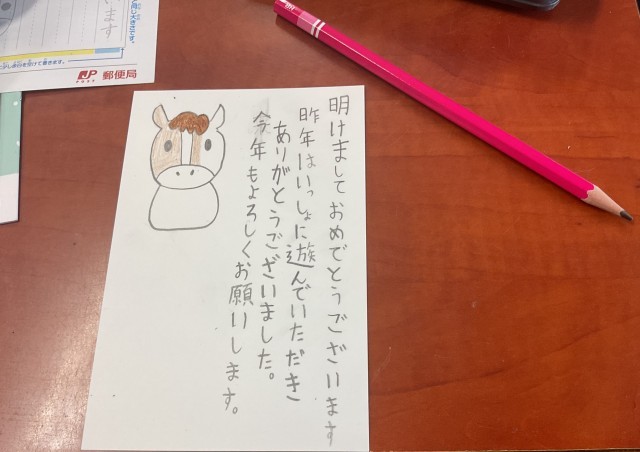 明けましておめでとうございます
昨年はいっしょに遊んでいただき
ありがとうございました。
今年もよろしくお願いします。
います
同じ大きさです。
JP 郵便局